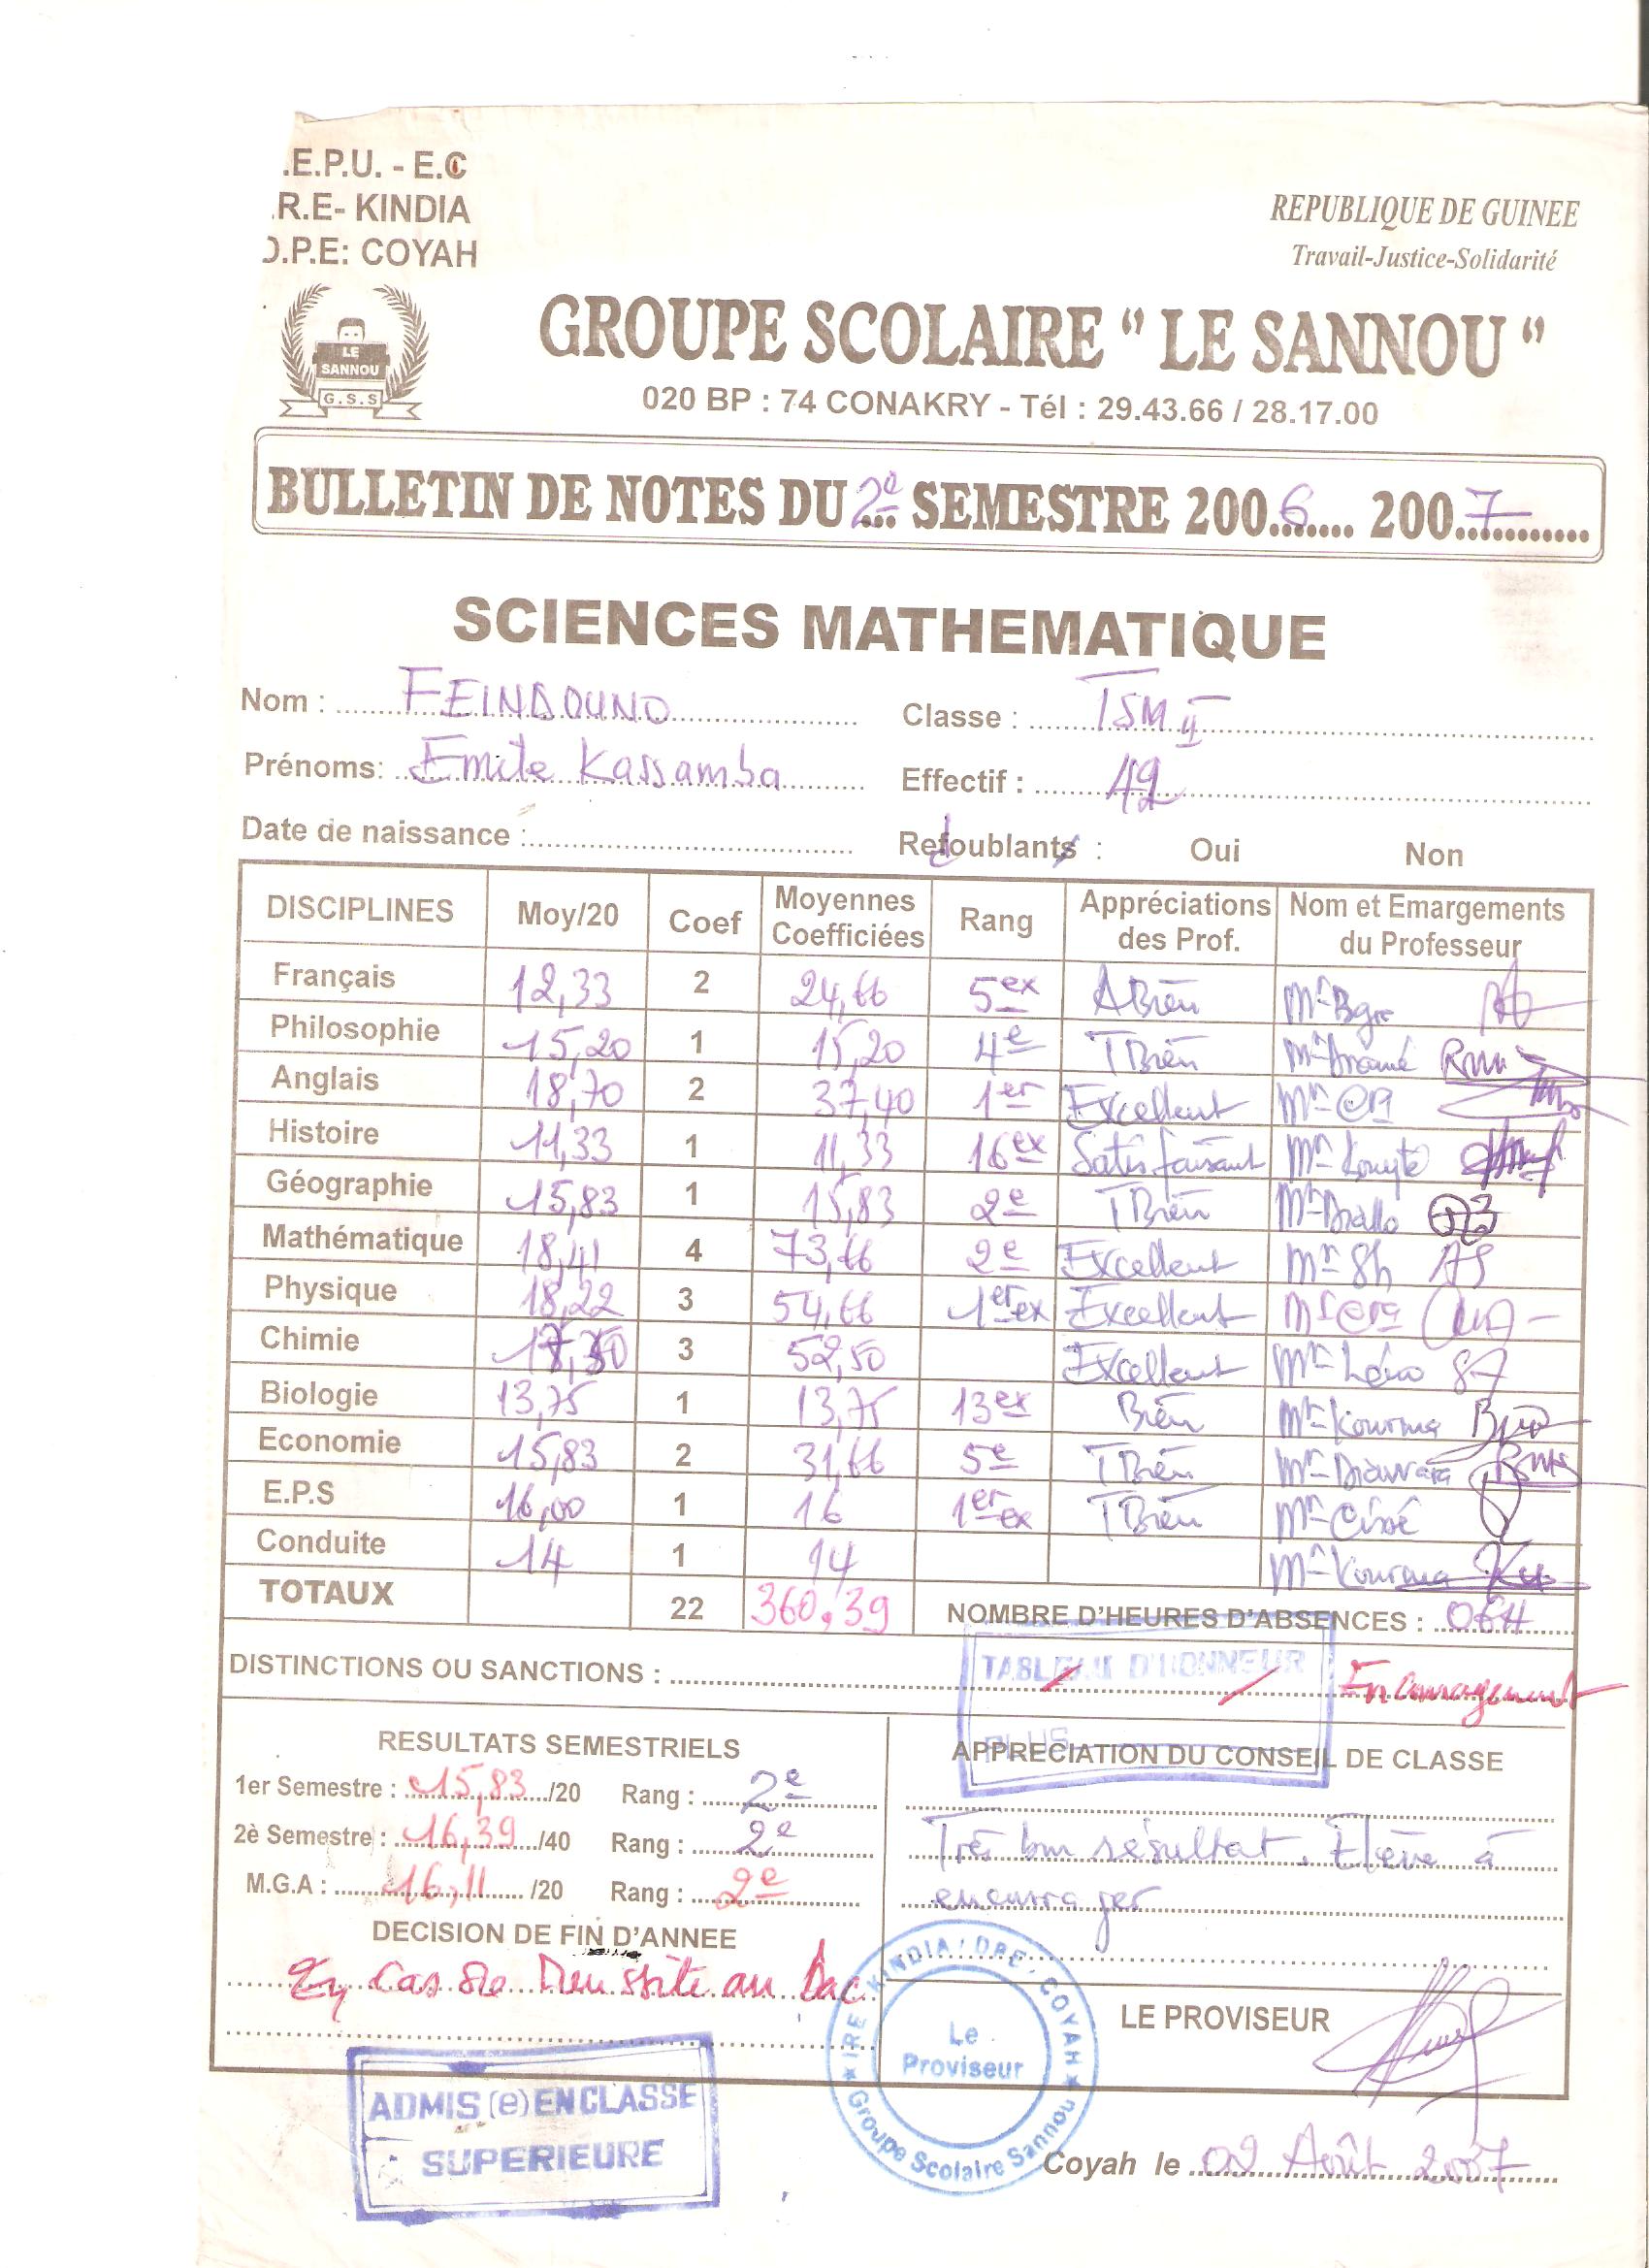 .E.P.U. - E.C
.R.E- KINDIA
D.P.E: COYAH
REPUBLIQUE DE GUINEE
Travail-Justice-Solidarité
LE SANNOU
G.S.S
GROUPE SCOLAIRE " LE SANNOU "
020 BP : 74 CONAKRY - Tél : 29.43.66 / 28.17.00
BULLETIN DE NOTES DU 2e SEMESTRE 2006 2007
SCIENCES MATHEMATIQUE
Nom : FEINDOUNO Classe : TSM II
Prénoms: Emile Kassamba Effectif : 42
Date de naissance : Redoublant : Oui Non
DISCIPLINES Moy/20 Coef Moyennes Coefficiées Rang Appréciations des Prof. Nom et Emargements du Professeur
Français 12,33 2 24,66 5ex ABien Mr
Philosophie 15,20 1 15,20 4e TBien Mr
Anglais 18,70 2 37,40 1er Excellent Mr
Histoire 11,33 1 11,33 16ex Satisfaisant Mr
Géographie 15,83 1 15,83 2e TBien Mr Diallo
Mathématique 18,41 4 73,66 2e Excellent Mr
Physique 18,22 3 54,66 1er ex Excellent Mr
Chimie 17,50 3 52,50 Excellent Mr
Biologie 13,75 1 13,75 13ex Bien Mr Kourma
Economie 15,83 2 31,66 5e TBien Mr
E.P.S 16,00 1 16 1er ex TBien Mr Cissé
Conduite 14 1 14 Mr Kourma
TOTAUX 22 360,39 NOMBRE D'HEURES D'ABSENCES : 06H
DISTINCTIONS OU SANCTIONS : TABLEAUX D'HONNEUR Encouragement
PLUS
RESULTATS SEMESTRIELS
1er Semestre : 15,83 /20 Rang : 2e
2è Semestre : 16,39 /40 Rang : 2e
M.G.A : 16,11 /20 Rang : 2e
APPRECIATION DU CONSEIL DE CLASSE
Très bon résultat. Elève à
encourager
DECISION DE FIN D'ANNEE
En cas de Reussite au Bac
LE PROVISEUR
IRE KINDIA / DPE / COYAH
Le Proviseur
Groupe Scolaire Sannou
ADMIS(e) EN CLASSE
SUPERIEURE
Coyah le 02 Août 2007